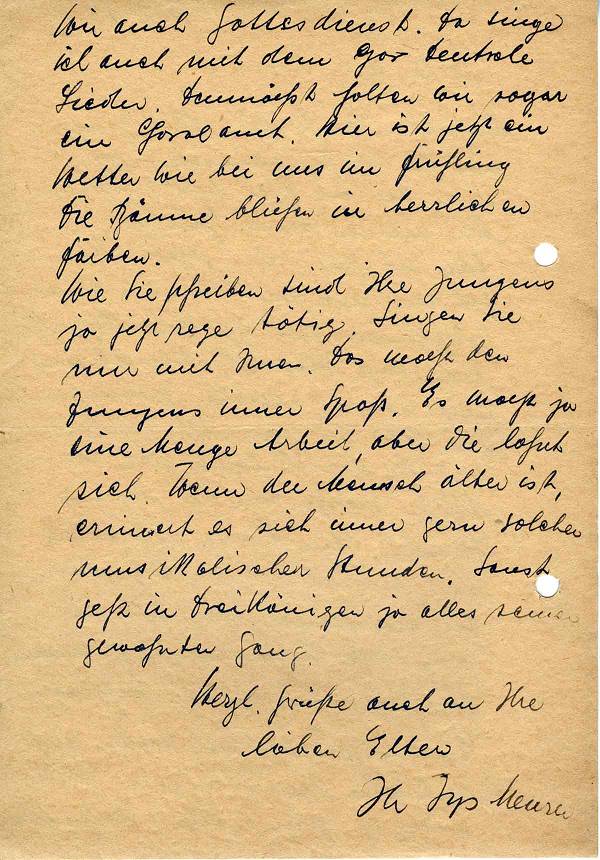 Wir auch Gottesdienst. Da singe
ich auch mit dem Chor deutsche
Lieder. Demnächst halten wir sogar
ein Choralamt. Hier ist jetzt ein
Wetter wie bei uns im Frühling
Die Bäume blühen in herrlichen
Farben.
Wie Sie schreiben sind Ihre Jungens
ja jetzt rege tätig. Singen Sie
nur mit Ihnen. Das macht den
Jungens immer Spaß. Es macht ja
eine Menge Arbeit, aber die lohnt
sich. Wenn der Mensch älter ist,
erinnert es sich immer gern solcher
musikalischer Stunden. Sonst
geht in Dreikönigen ja alles seinen
gewohnten Gang.
Herzl. Grüße auch an Ihre
lieben Eltern
Ihr